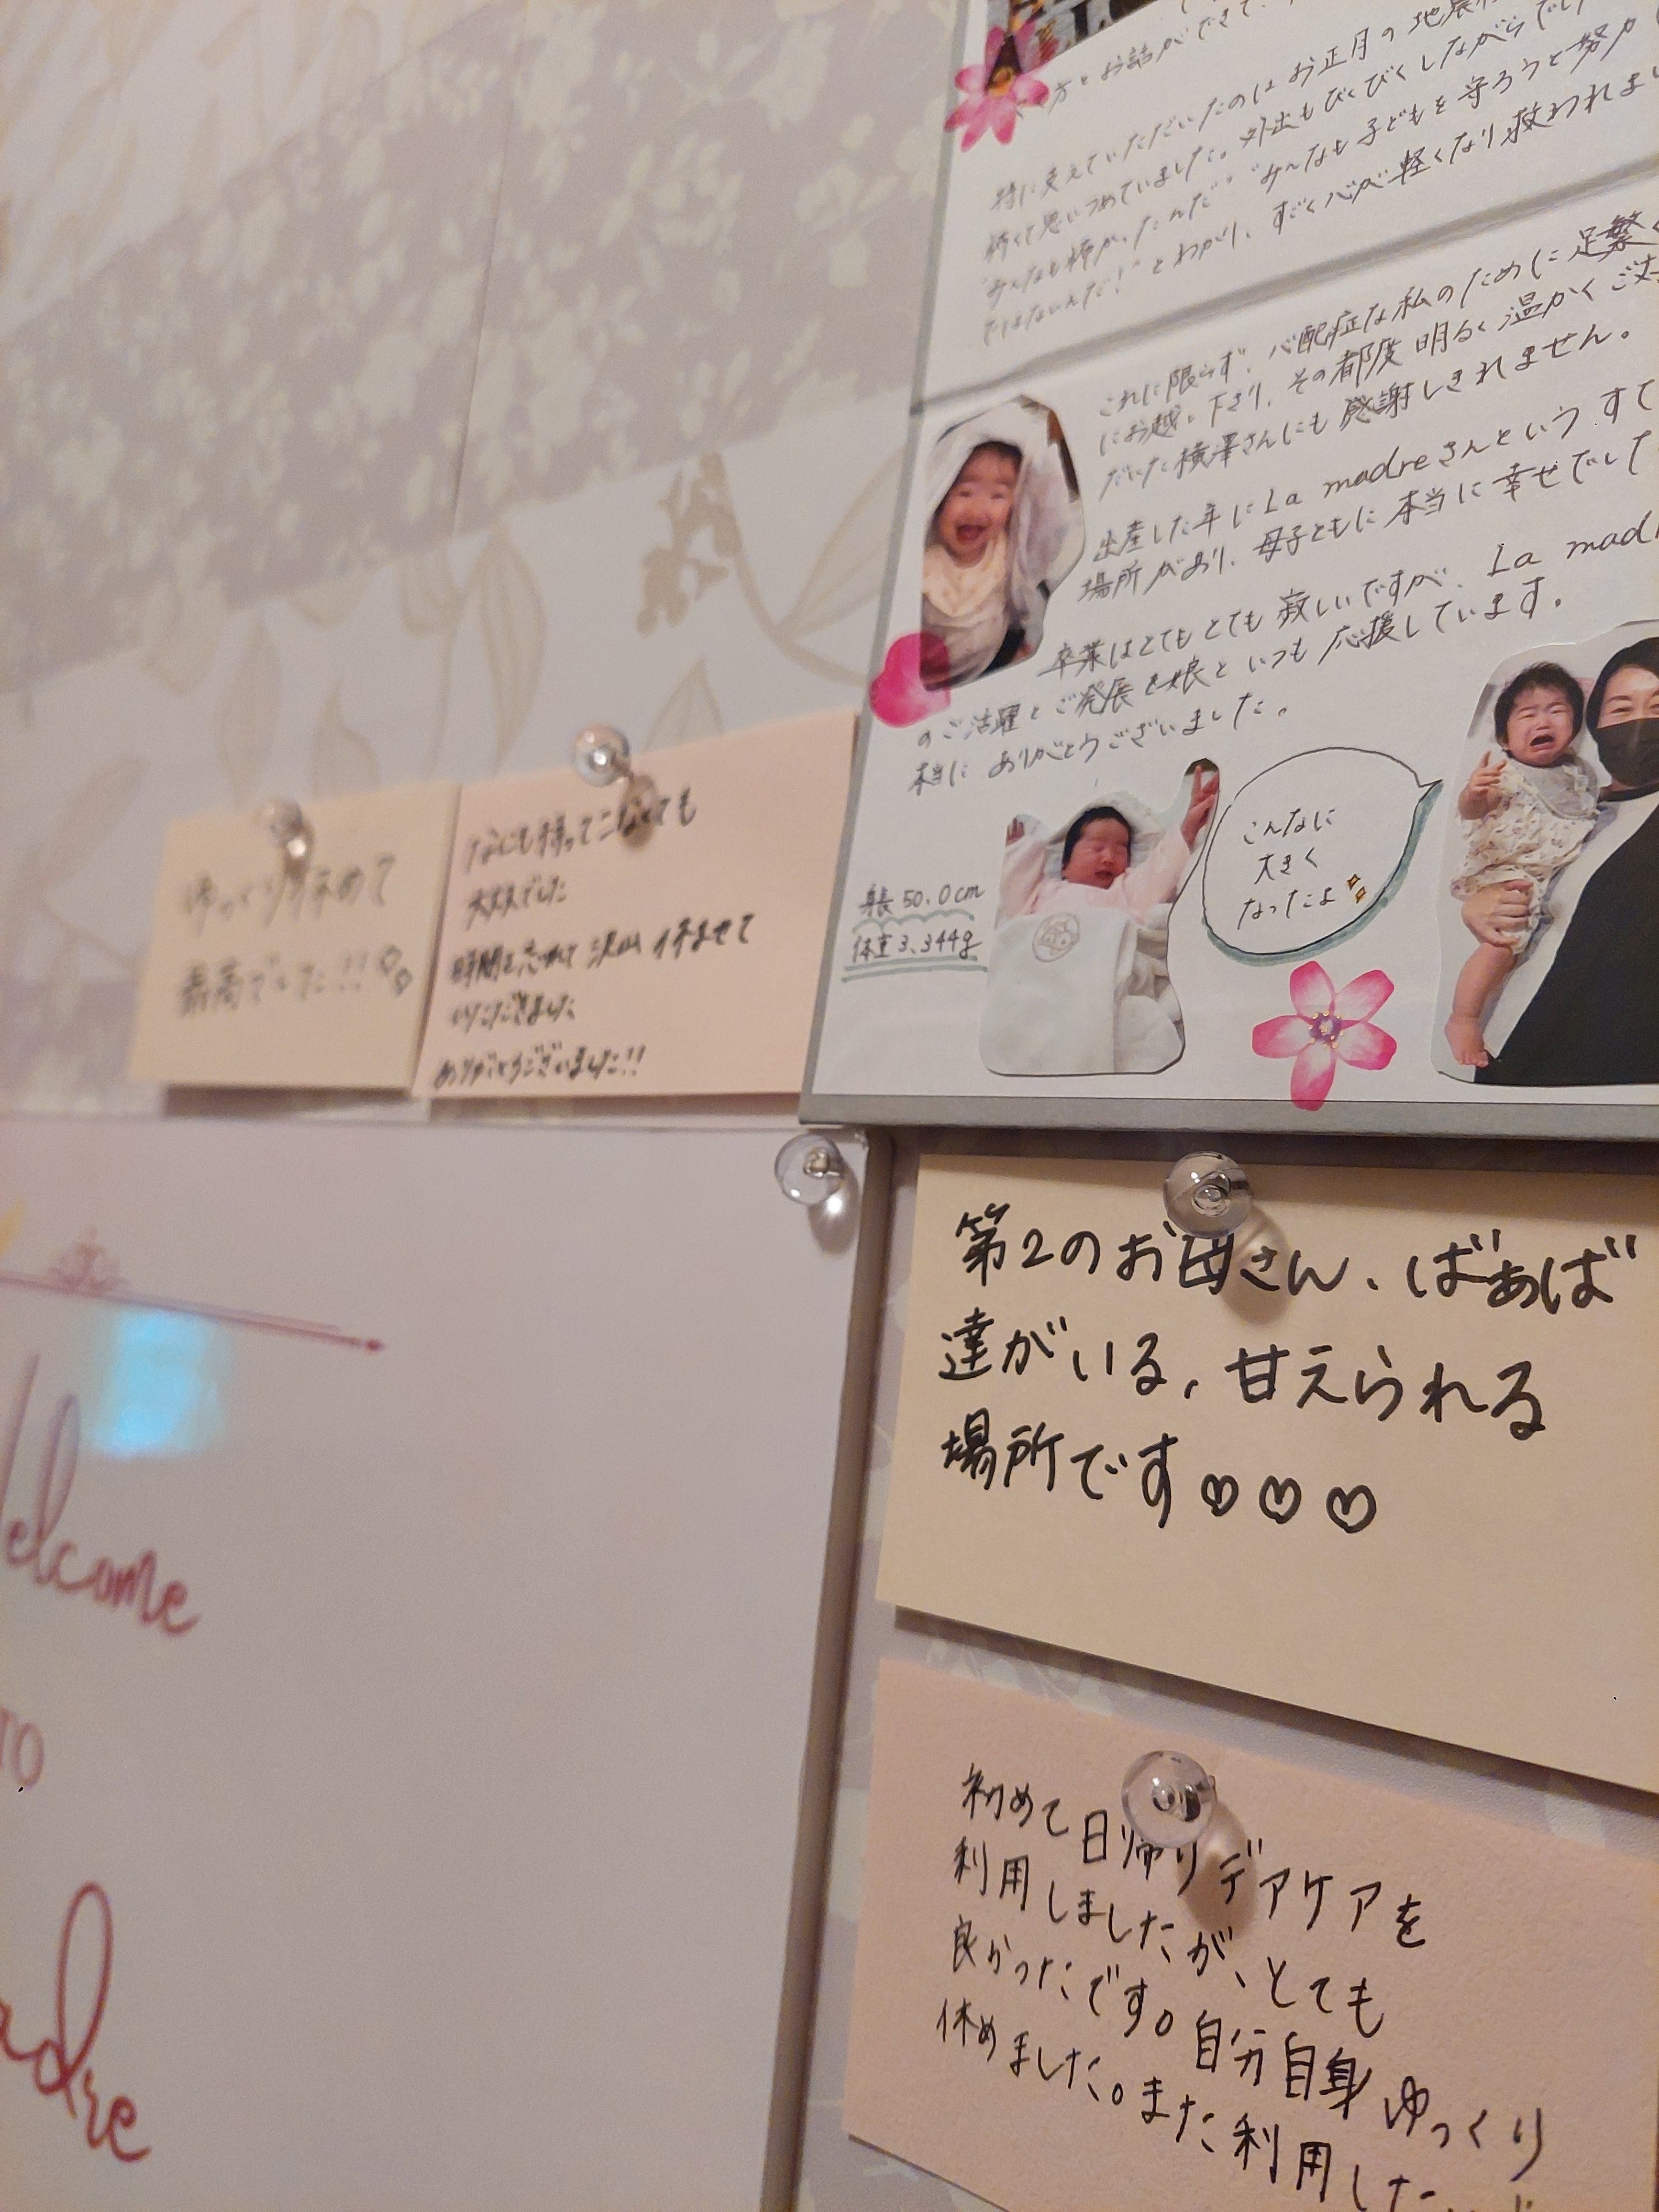 方とお話ができて、
特に支えていただいたのはお正月の地震
怖くて思いつめていました。外出もびくびくしながらで
"みんなも怖かったんだ" "み〜んなも子どもを守ろうと努力
ではないんだ！"とわかり、すごく心が軽くなり救われまし
これに限らず、心配症な私のために足繁く
にお越し下さり、その都度明るく温かくご
だいた横澤さんにも感謝しきれません。
出産した年にLa madreさんという すて
場所があり、母子ともに本当に幸せでした
卒業はとてもとても寂しいですが、La mad
のご活躍とご発展を娘といつも応援しています。
本当に ありがとうございました。
身長 50.0cm
体重 3,344g
こんなに
大きく
なったよ
ゆっくり休めて
最高でした!!
なにも持ってこなくても
大丈夫でした
時間を忘れて 沢山 休ませて
いただきました
ありがとうございました!!
elcome
TO
adre
第2のお母さん、ばあば
達がいる、甘えられる
場所です♡♡♡
初めて日帰りデアケアを
利用しましたが、とても
良かったです。自分自身ゆっくり
休めました。また利用した